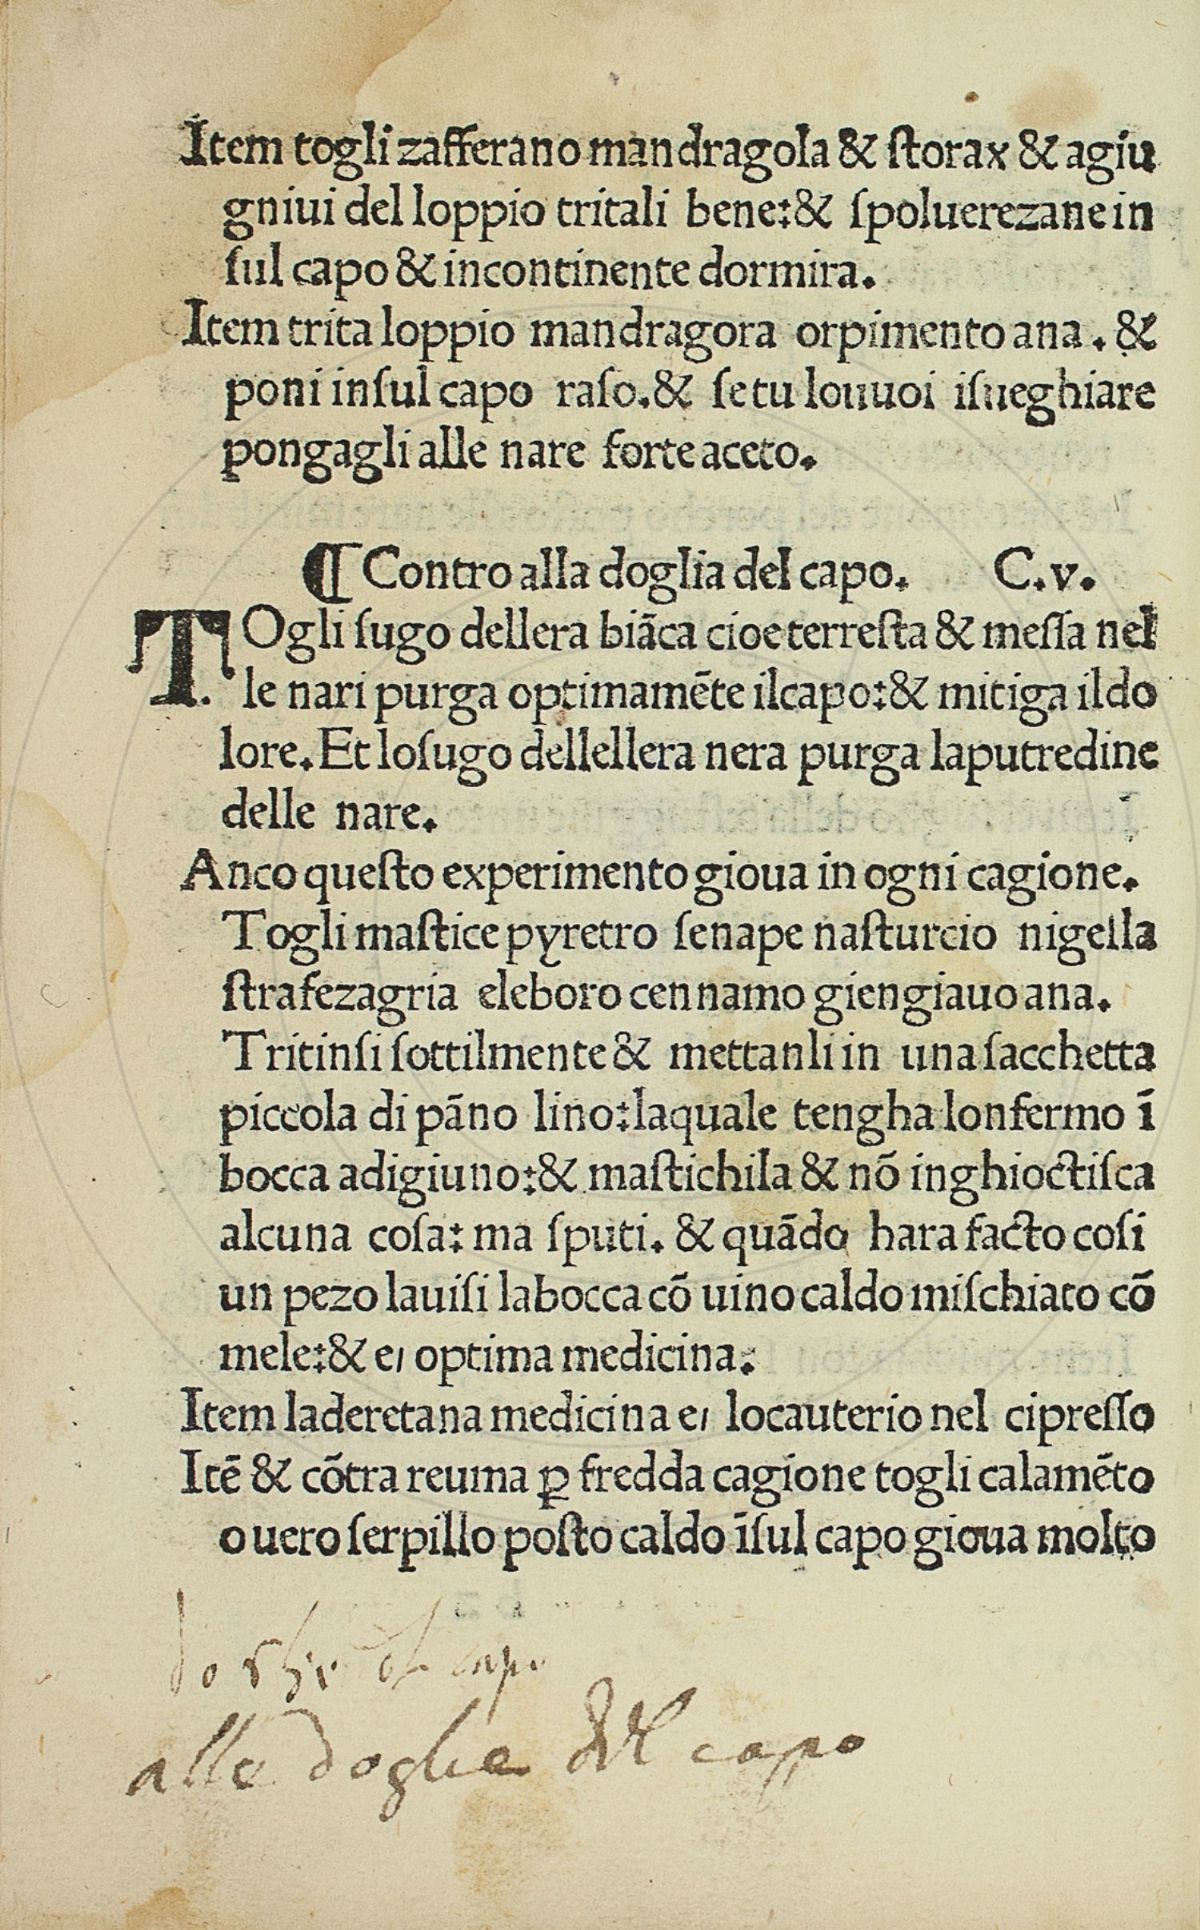 Item togli zafferano mandragola & ſtorax & agiu
gniui del loppio tritali bene:& ſpoluerezane in
ſul capo & incontinente dormira.
Item trita loppio mandragora orpimento ana . &
poni inſul capo raſo.& ſe tu louuoi iſueghiare
pongagli alle nare forte aceto.
¶ Contro alla doglia del capo. C.v.
TOgli ſugo dellera biāca cioe terreſta & meſſa nel
le nari purga optimamēte ilcapo:& mitiga ildo
lore.Et loſugo dellellera nera purga laputredine
delle nare.
Anco queſto experimento gioua in ogni cagione.
Togli maſtice pyretro ſenape naſturcio nigella
ſtrafezagria eleboro cennamo giengiauo ana.
Tritinſi ſottilmente & mettanli in una ſacchetta
piccola di pāno lino:laquale tengha lonfermo ī
bocca adigiuno:& maſtichila & nō inghioctiſca
alcuna coſa: ma ſputi. & quādo hara facto coſi
un pezo lauiſi labocca cō uino caldo miſchiato cō
mele:& e, optima medicina.
Item laderetana medicina e, locauterio nel cipreſſo
Itē & cōtra reuma ꝑ fredda cagione togli calamēto
o uero ſerpillo poſto caldo īſul capo gioua molto
capo
alle doglie del capo